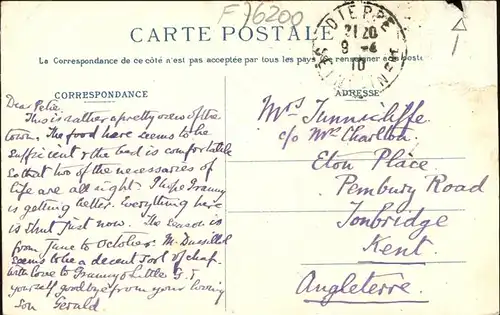 F 76200
CARTE POSTALE
La Correspondance de ce côté n'est pas acceptée par tous les pays
renseigner
poste
DIEPPE
21 20
9 - 4
10
CORRESPONDANCE
ADRESSE
Dear Petie.
This is rather a pretty view of the
town. The food here seems to be
sufficient & the bed is comfortable
so that two of the necessaries of
life are all right. I hope Granny
is getting better. Everything here
is shut just now. The season is
from June to October. M.
seems to be a decent sort of chap.
With love to Granny & Little G.T.
yourself goodbye from your loving
Son Gerald
Mrs Tunnicliffe
c/o Mrs Charlton
Eton Place
Pembury Road
Tonbridge
Kent.
Angleterre.